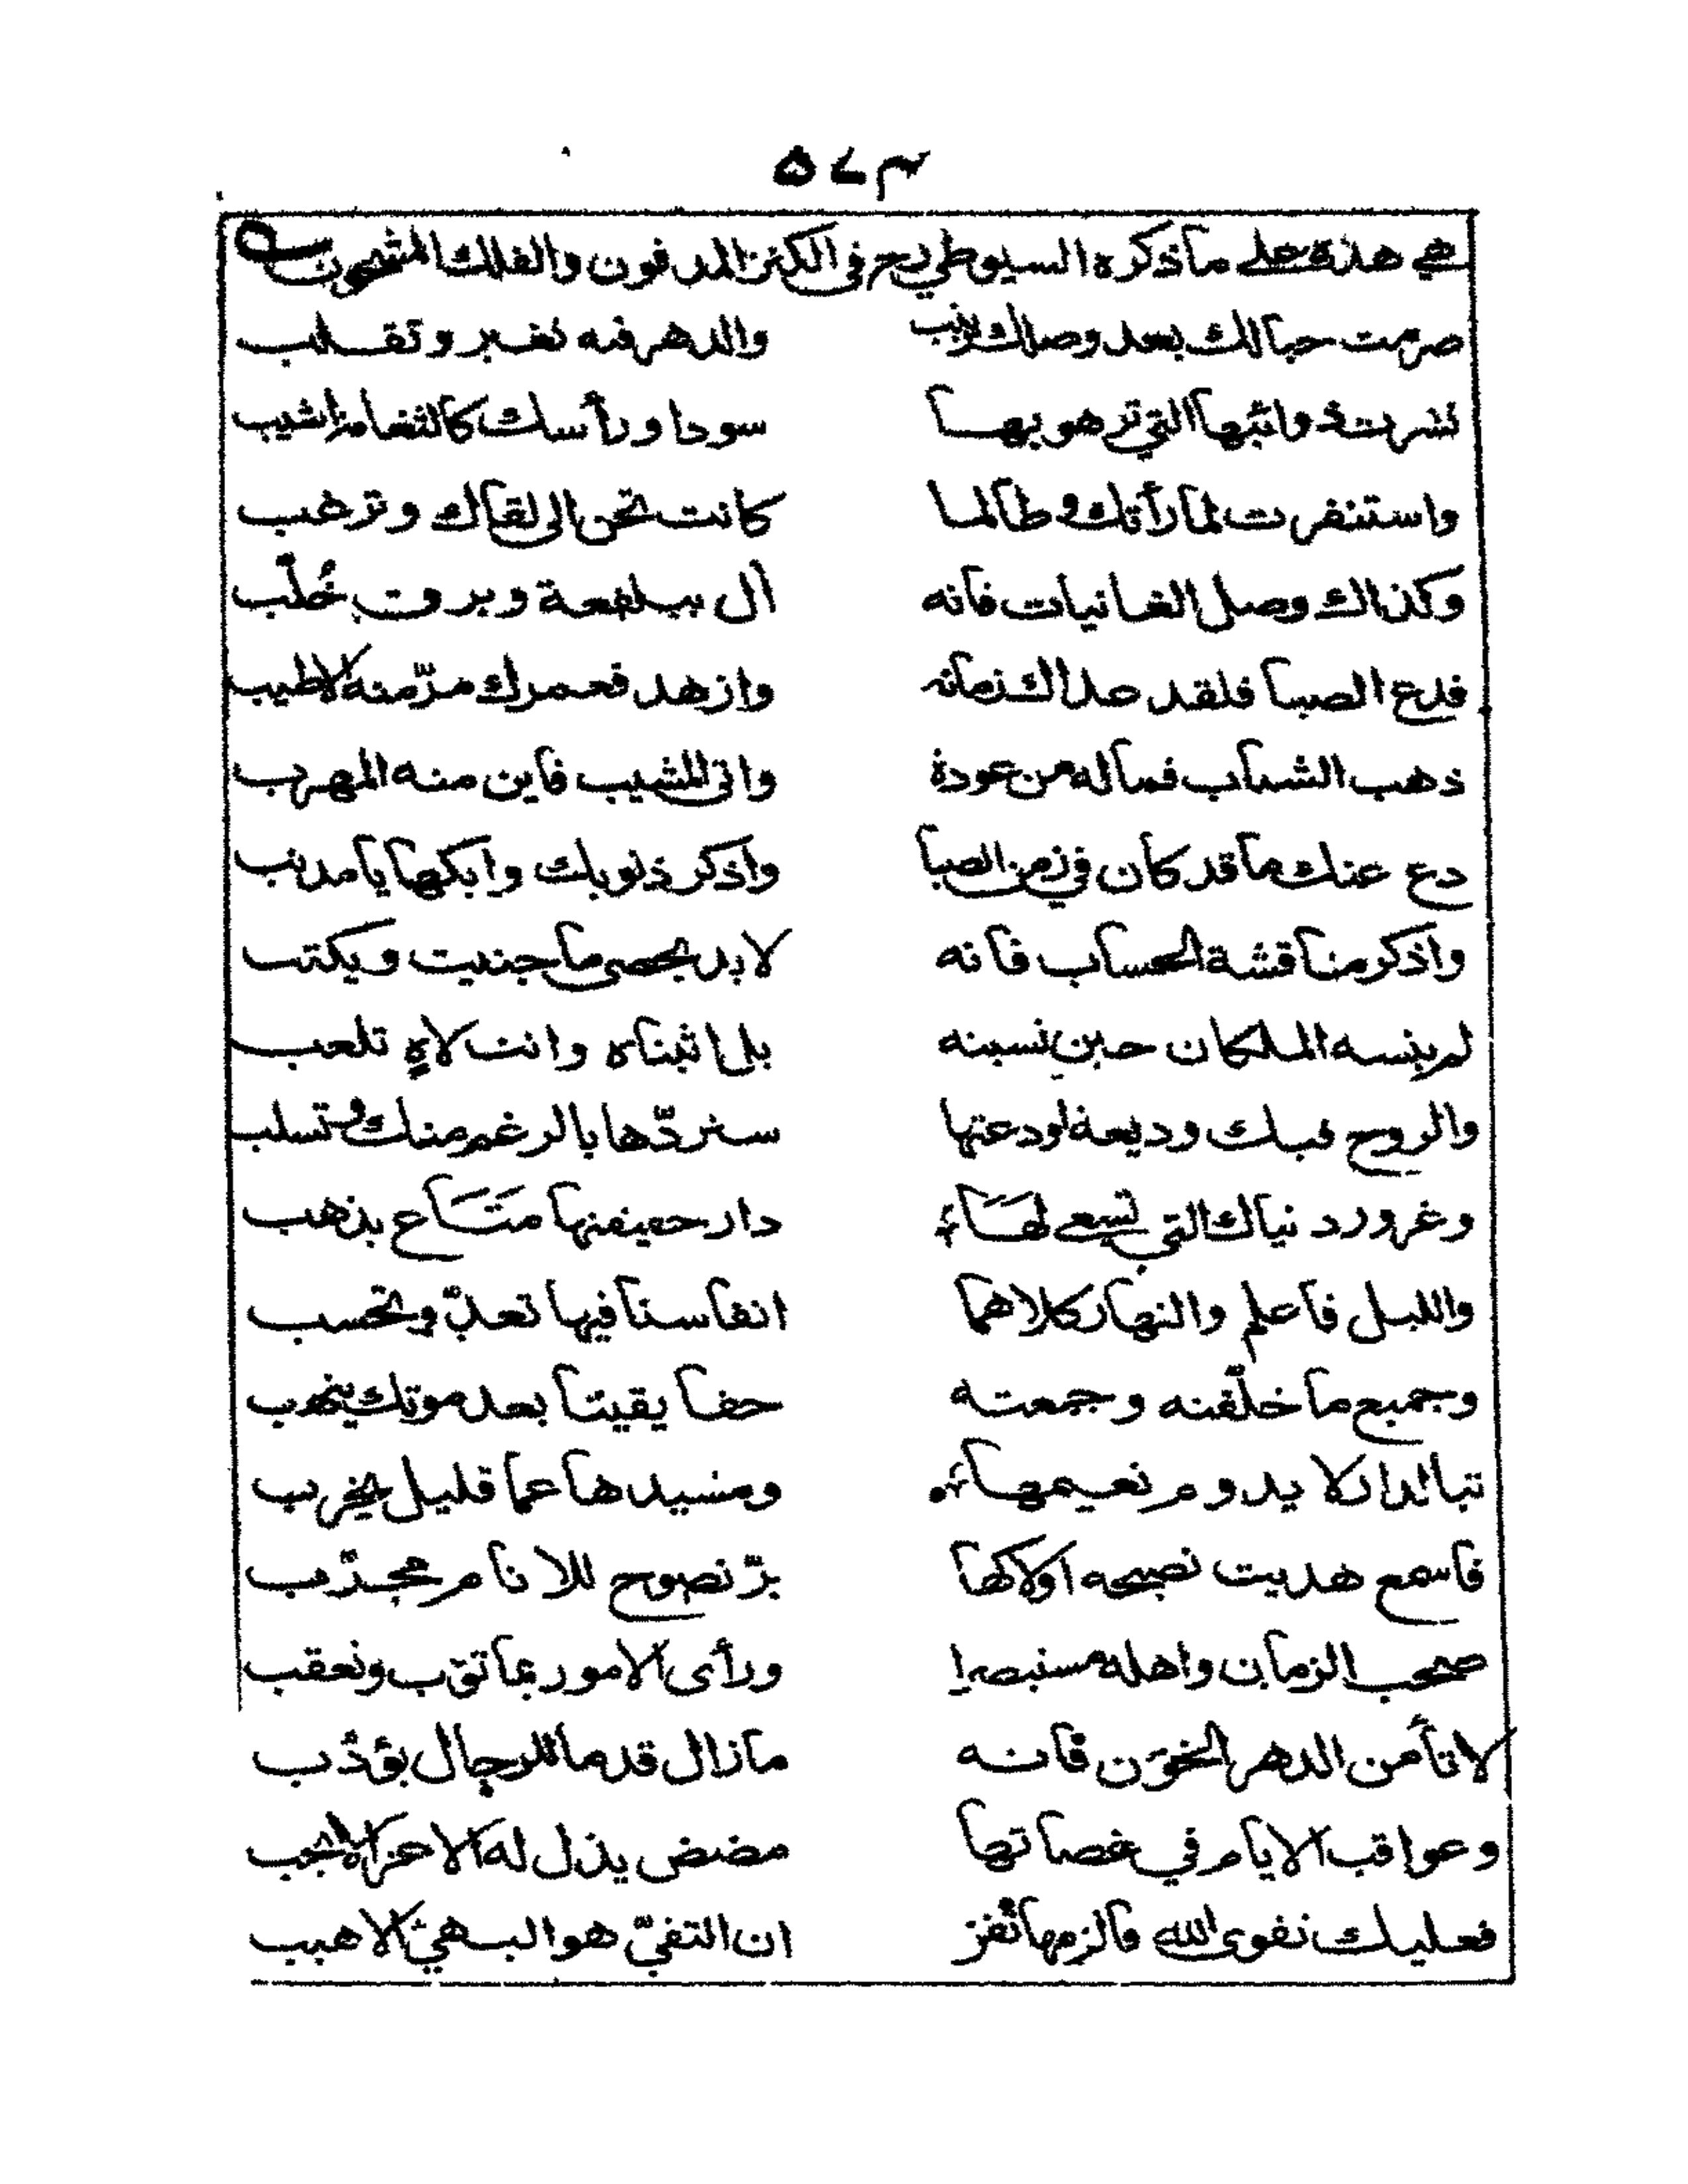 ٥٤٣
هي هذه على ما ذكره السيوطي رح في الكنز المدفون والفلك المشحون
صرمت حبالك بعد وصلك زينب والدهر فيه تغير وتقلب
نشرت ذوائبها التي تزهو بها سودا ورأسك كالثغامة اشيب
واستنفرت لما رأتك وطالما كانت تحن الى لقاك وترهب
وكذاك وصل الغانيات فانه آل ببلقعة وبرق خُلّب
فدع الصبا فلقد عداك زمانه وازهد فعمرك مرّ منه الاطيب
ذهب الشباب فما له من عودة واتى المشيب فاين منه المهرب
دع عنك ما قد كان في زمن الصبا واذكر ذنوبك وابكها يا مذنب
واذكر مناقشة الحساب فانه لا بد يحصى ما جنيت ويكتب
لم ينسه الملكان حين نسيته بل اثبتاه وانت لاهٍ تلعب
والروح فيك وديعة اودعتها ستردّها بالرغم منك وتسلب
وغرور دنياك التي تسعى لهَا دار حقيقتها متَاع يذهب
والليل فاعلم والنهار كلاهما انفاسنا فيها تعدّ وتحسب
وجميع ما خلّفته وجمعته حقا يقينا بعد موتك ينهب
تبا لدار لا يدوم نعيمها ومشيدها عما قليل يخرب
فاسمع هديت نصيحه اولاكها برّ نصوح للانام مجرّب
صحب الزمان واهله مستبصرا ورأى الامور بما تؤب وتعقب
لا تأمن الدهر الخؤن فانه ما زال قدما للرجال يؤدّب
وعواقب الايام في غصاتها مضض يذل له الاعز الانجب
فعليك تقوى الله فالزمها تفز ان التقيّ هو البهيّ الاهيب